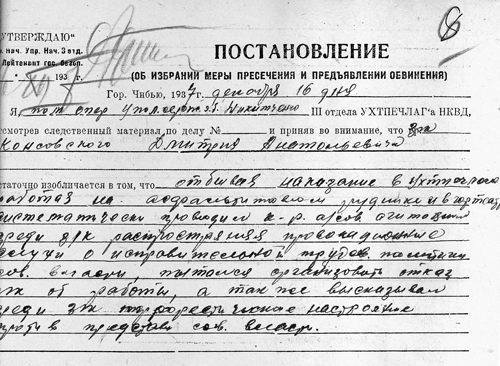 УТВЕРЖДАЮ"
нач. Упр. Нач. 3 отд.
Лейтенант гос. безоп.
193
ПОСТАНОВЛЕНИЕ
(ОБ ИЗБРАНИИ МЕРЫ ПРЕСЕЧЕНИЯ И ПРЕДЪЯВЛЕНИИ ОБВИНЕНИЯ)
Гор. Чибью, 1937 декабря 16 дня
Я, пом опер III отдела УХТПЕЧЛАГ'а НКВД,
ссмотрев следственный материал по делу № и приняв во внимание, что
Консовского Дмитрия Анатольевича
статочно изобличается в том, что отбывая наказание в Ухтпечлаг
работая на руднике
истематически проводил к-р. агитацию
реди з/к распространяя провокационные
слухи о исправительной трудов. политики
сов. власти, пытался организовать отказ
з/к от работы, а так же высказывал
реди з/к террористическое настроение
против представи сов. власт.